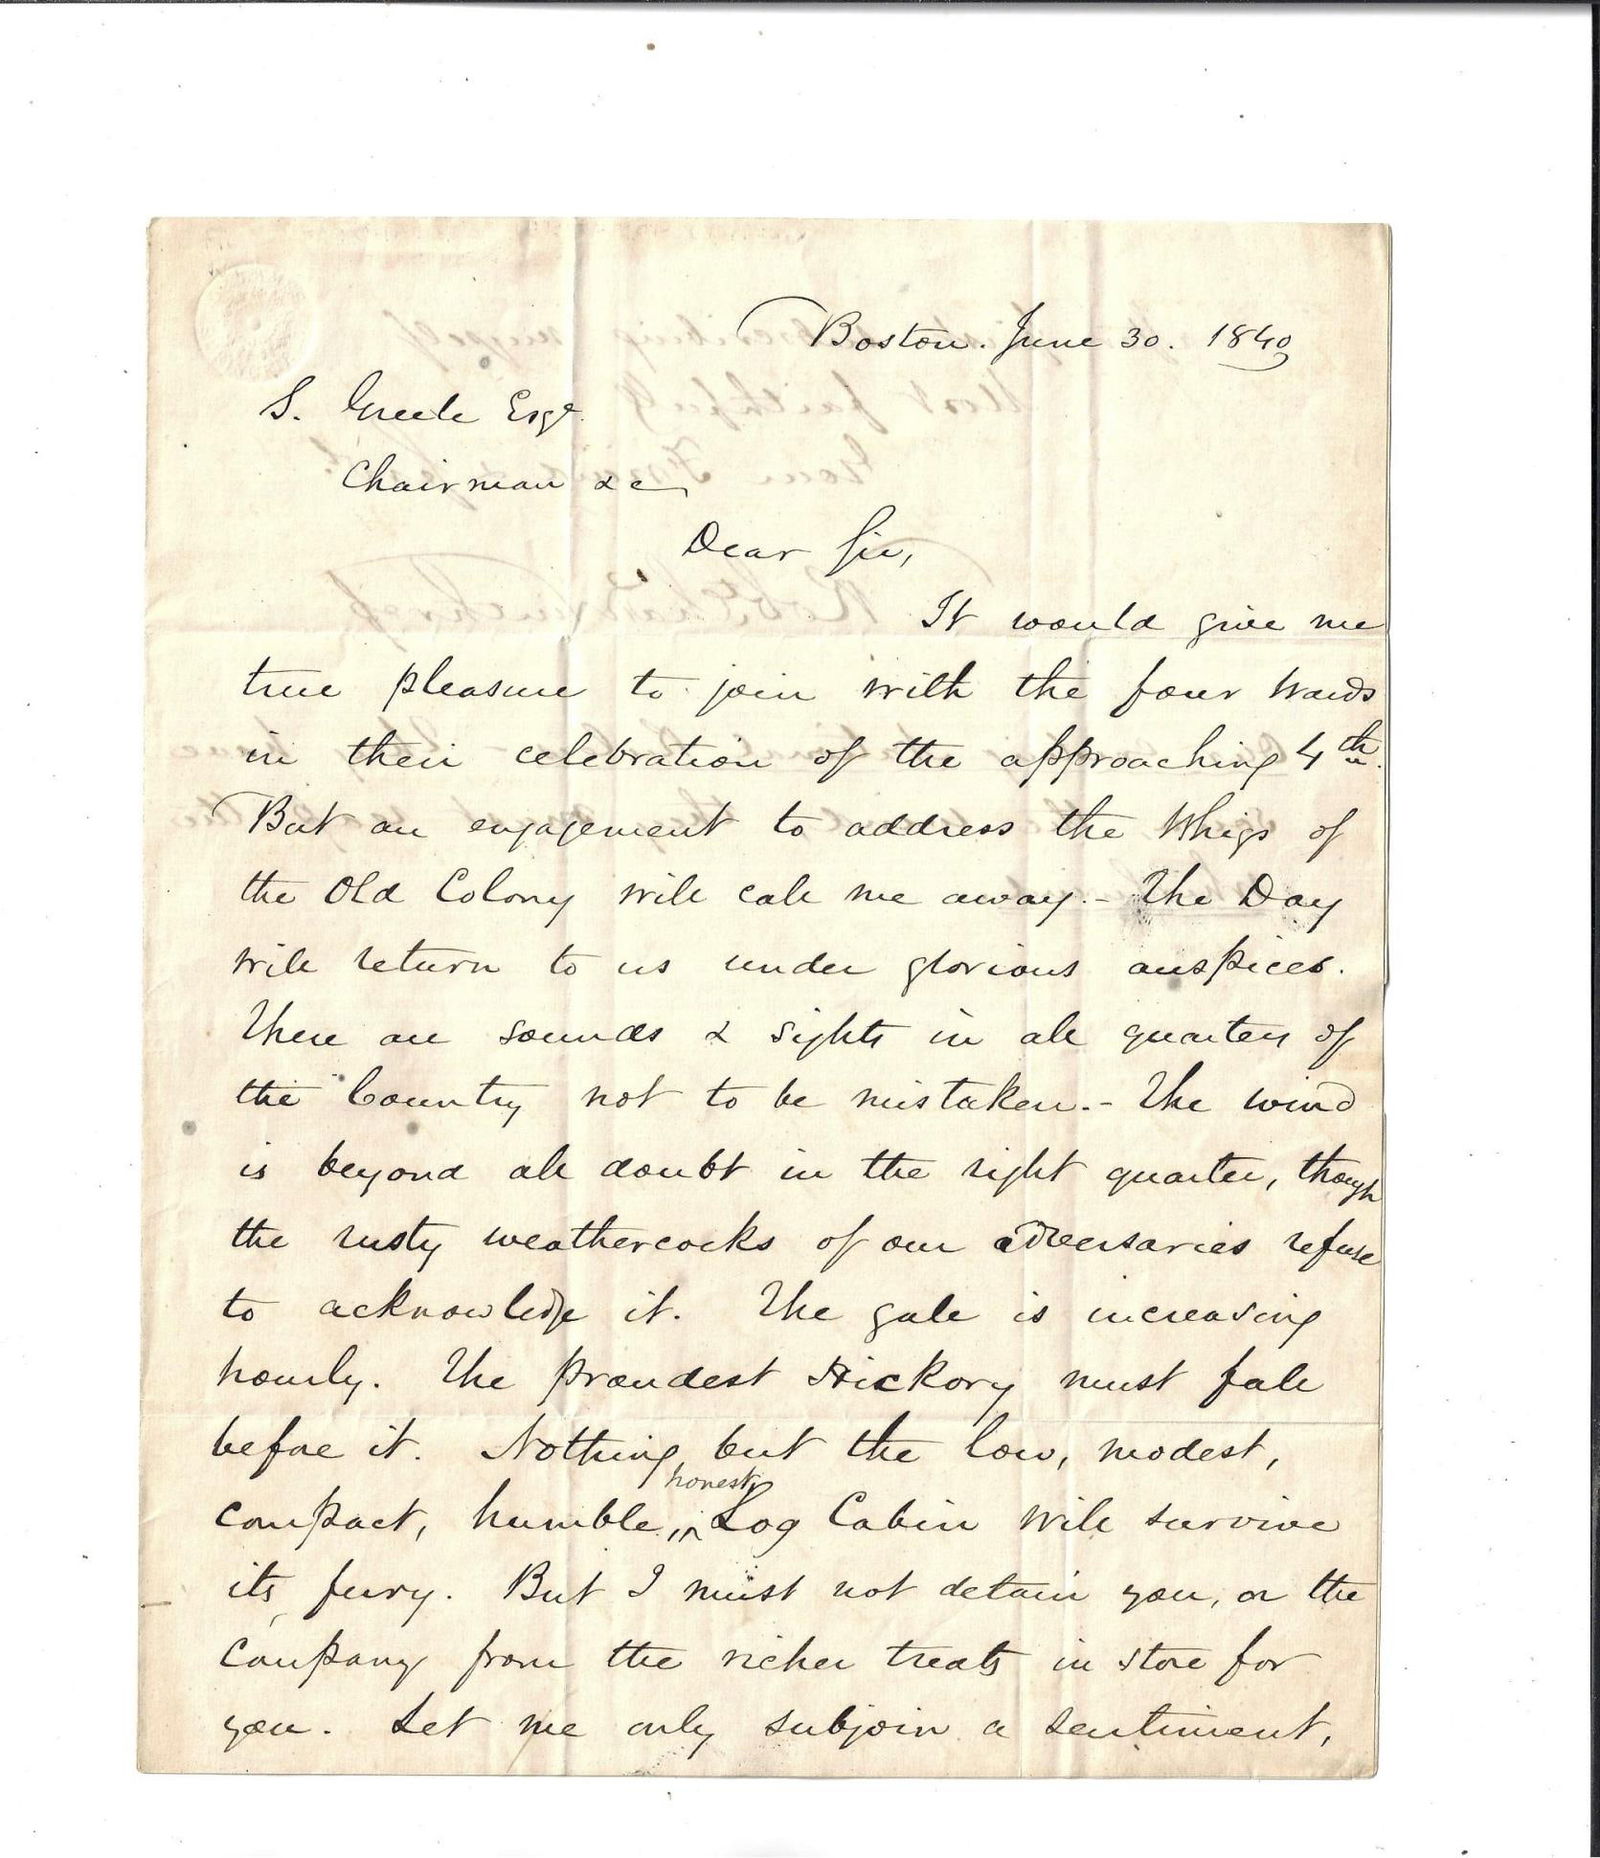 Boston. June 30. 1840
S. Greele Esqr.
Chairman &c
Dear Sir,
It would give me
true pleasure to join with the four Wards
in their celebration of the approaching 4th.
But an engagement to address the Whigs of
the Old Colony will call me away. - The Day
will return to us under glorious auspices.
There are sounds & sights in all quarters of
the Country not to be mistaken. - The wind
is beyond all doubt in the right quarter, though
the rusty weathercocks of our adversaries refuse
to acknowledge it. The gale is increasing
hourly. The proudest Hickory must fall
before it. Nothing but the low, modest,
compact, humble, honest, Log Cabin will survive
its fury. But I must not detain you, or the
Company from the richer treats in store for
you. Let me only subjoin a sentiment,